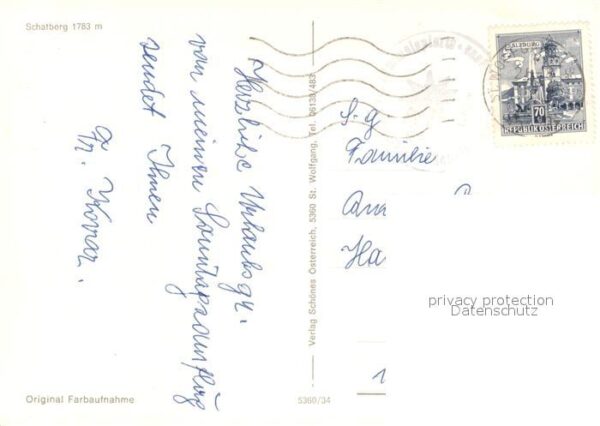 Schafberg 1783 m
Herzliche Urlaubsgr.
von meinem Sonntagsausflug
sendet Ihnen
Verlag Schönes Österreich, 5360 St. Wolfgang, Tel. 06138/483
SALZBURG
70
REPUBLIK ÖSTERREICH
S. g.
Familie
Ha
1
privacy protection
Datenschutz
Original Farbaufnahme
5360/34